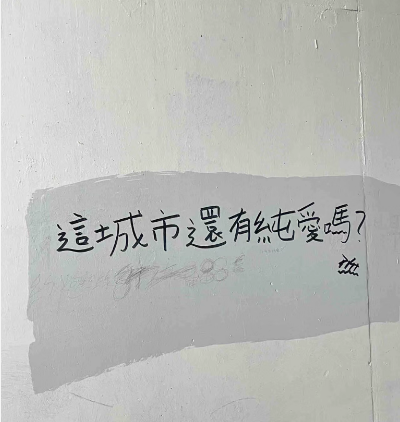 這城市還有純愛嗎?